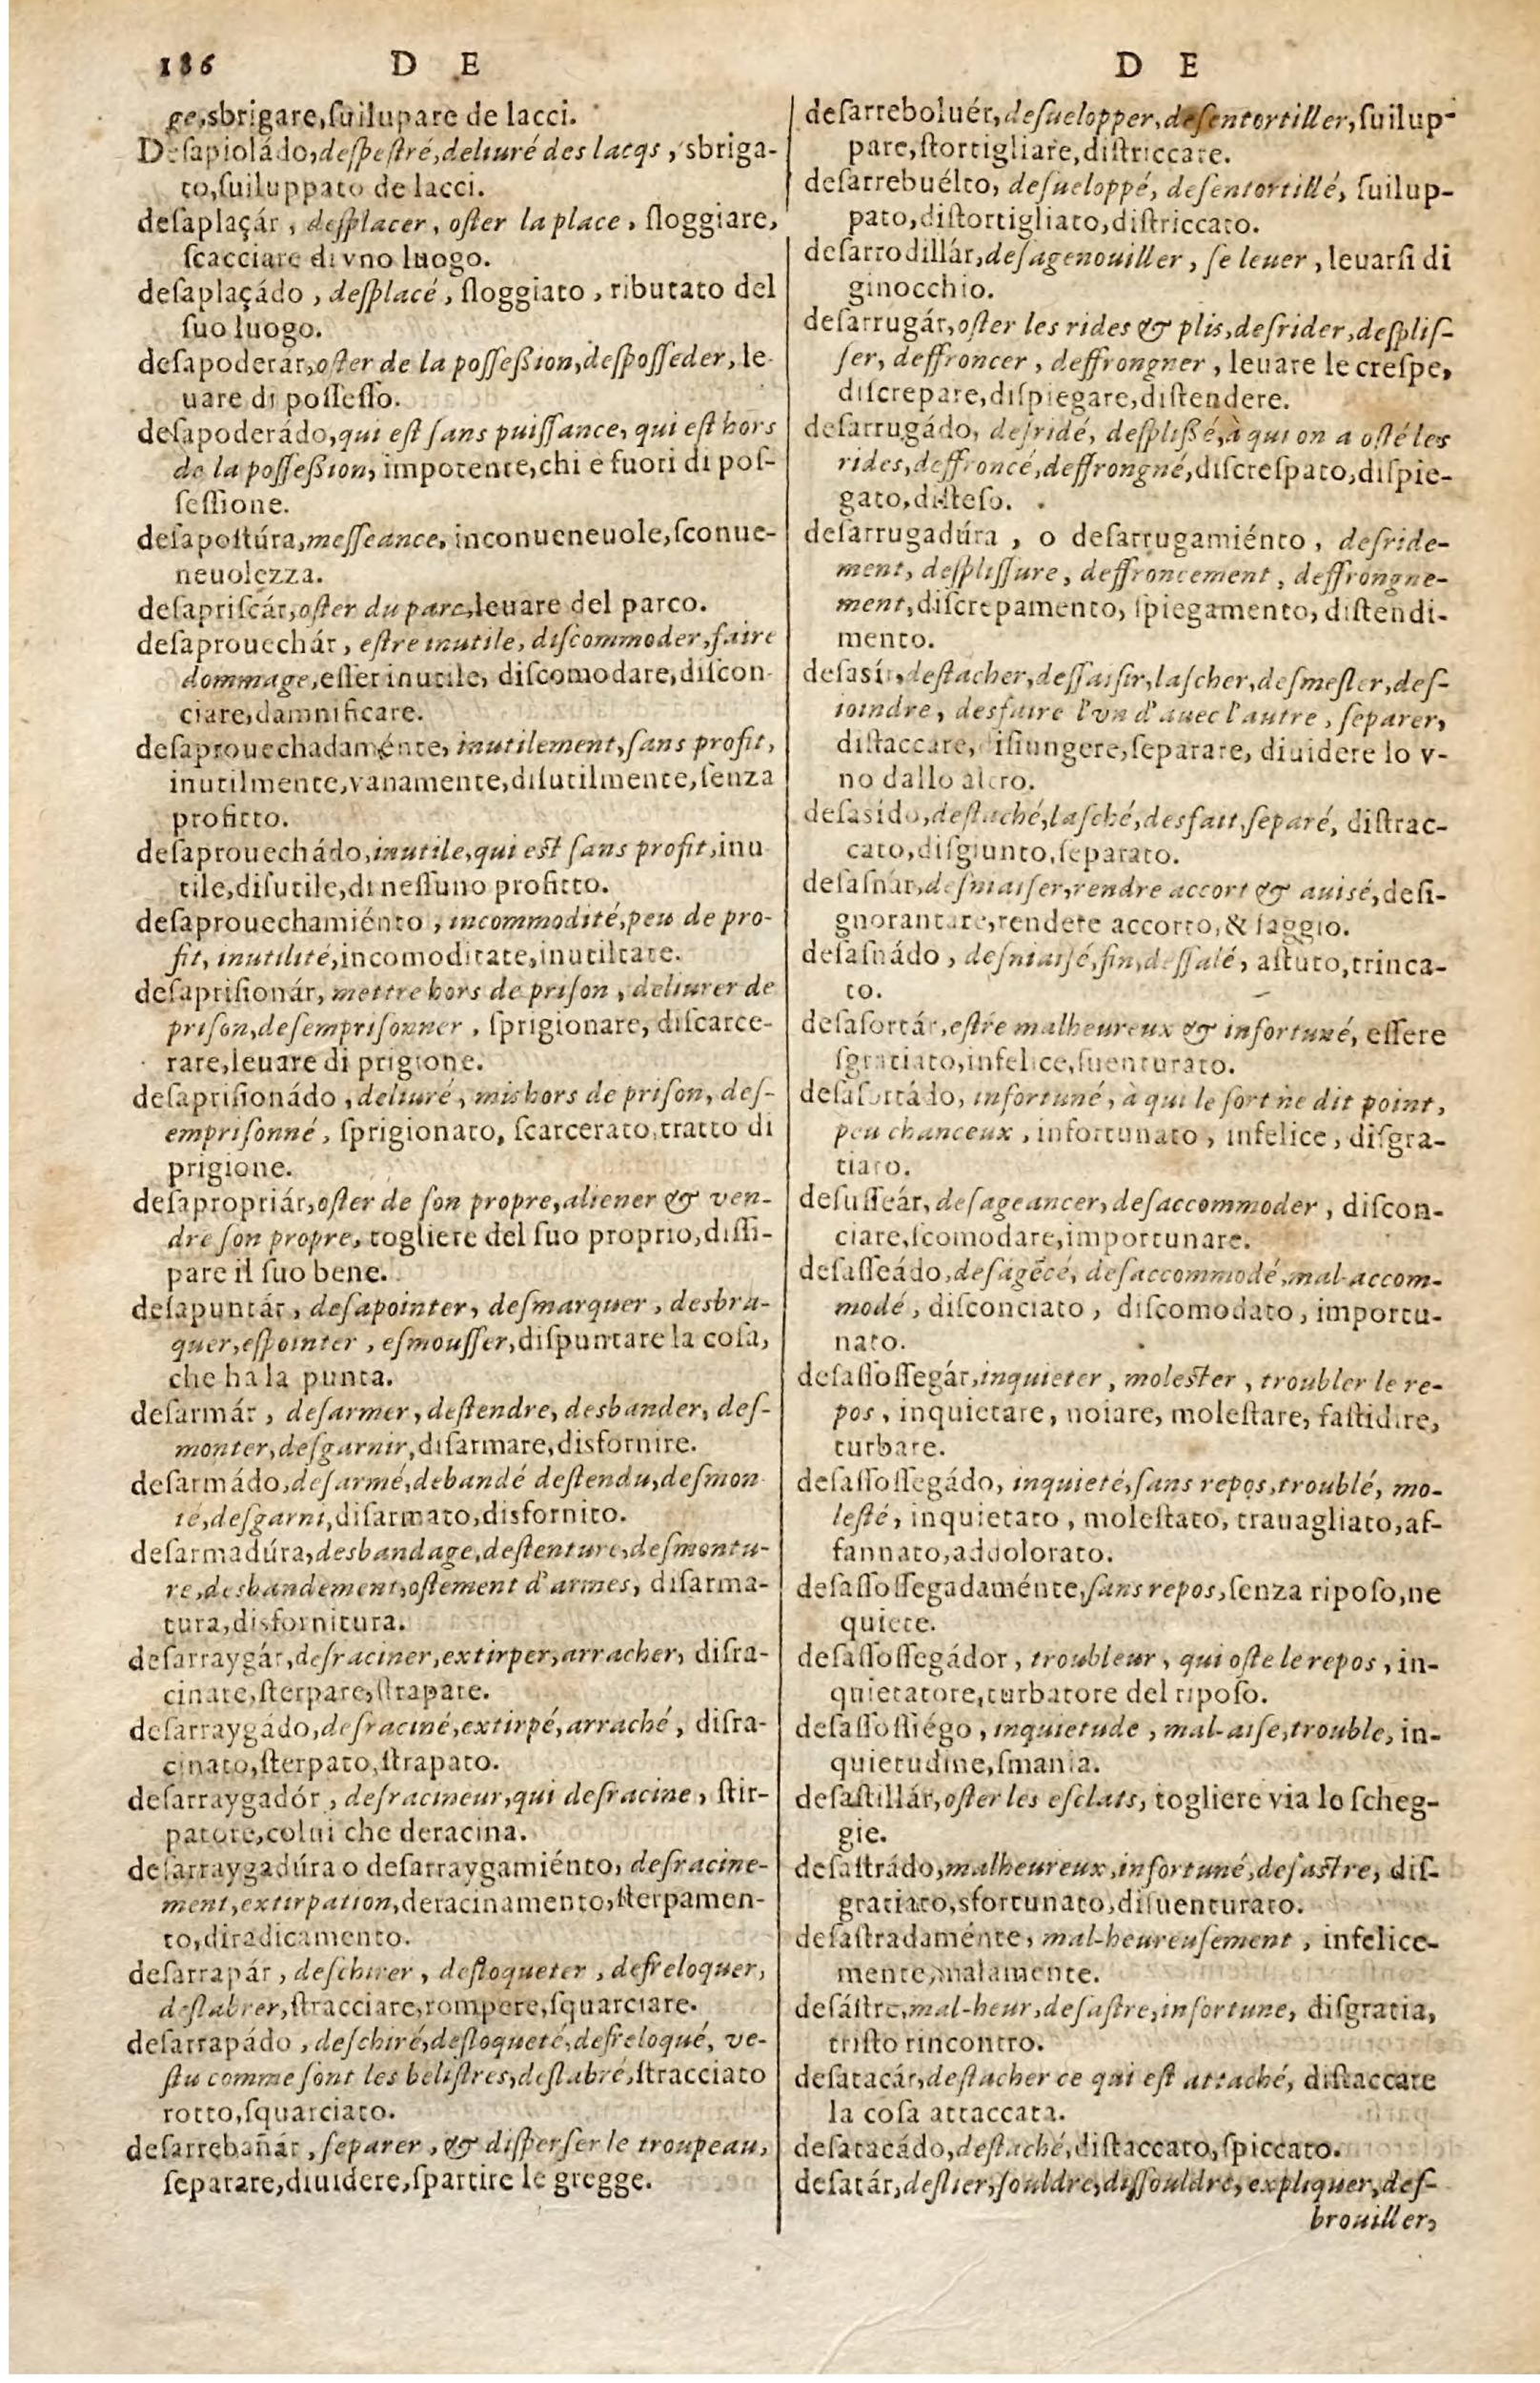 186 D E
ge,sbrigare,ſuilupare de lacci.
Deſapioládo,deſpeſtré,deliuré des lacqs, sbriga-
to,ſuiluppato de lacci.
deſaplaçár, deſplacer, oſter la place, ſloggiare,
ſcacciare di vno luogo.
deſaplaçádo, deſplacé, ſloggiato, ributato del
ſuo luogo.
deſapoderár,oſter de la poſſeßion,deſpoſſeder, le-
uare di poſſeſſo.
deſapoderádo,qui eſt ſans puiſſance, qui eſt hors
de la poſſeßion, impotente,chi e fuori di poſ-
ſeſſione.
deſapoſtúra,meſſeance, inconueneuole,ſconue-
neuolezza.
deſapriſcár,oſter du parc,leuare del parco.
deſaprouechár, eſtre inutile, diſcommoder,faire
dommage,eſſer inutile, diſcomodare,diſcon-
ciare,damnificare.
deſaprouechadaménte, inutilement,ſans profit,
inutilmente,vanamente,diſutilmente,ſenza
profitto.
deſaprouechádo,inutile,qui est ſans profit,inu
tile,diſutile,di neſſuno profitto.
deſaprouechamiénto, incommodité,peu de pro-
fit, inutilité,incomoditate,inutiltate.
deſapriſionár, mettre hors de priſon, deliurer de
priſon,deſempriſonner, ſprigionare, diſcarce-
rare,leuare di prigione.
deſapriſionádo,deliuré, mis hors de priſon, deſ-
empriſonné, ſprigionato, ſcarcerato,tratto di
prigione.
deſapropriár,oſter de ſon propre,aliener & ven-
dre ſon propre, togliere del ſuo proprio,diſſi-
pare il ſuo bene.
deſapuntár, deſapointer, deſmarquer, desbra-
quer,eſpointer, eſmouſſer,diſpuntare la coſa,
che ha la punta.
deſarmár, deſarmer, deſtendre, desbander, deſ-
monter,deſgarnir,diſarmare,disfornire.
deſarmádo,deſarmé,debandé deſtendu,deſmon
té,deſgarni,diſarmato,disfornito.
deſarmadúra,desbandage,deſtenture,deſmontu-
re,desbandement,oſtement d'armes, diſarma-
tura,disfornitura.
deſarraygár,deſraciner,extirper,arracher, diſra-
cinare,ſterpare,ſtrapare.
deſarraygádo,deſraciné,extirpé,arraché, diſra-
cinato,ſterpato,ſtrapato.
deſarraygadór, deſracineur,qui deſracine, ſtir-
patore,colui che deracina.
deſarraygadúra o deſarraygamiénto, deſracine-
ment,extirpation,deracinamento,ſterpamen-
to,diradicamento.
deſarrapár, deſchirer, deſloqueter, defreloquer,
deſlabrer,ſtracciare,rompere,ſquarciare.
deſarrapádo, deſchiré,deſloqueté,defreloqué, ve-
ſtu comme ſont les beliſtres,deſlabré,ſtracciato
rotto,ſquarciato.
deſarrebañár, ſeparer, & diſperſer le troupeau,
ſeparare,diuidere,ſpartire le gregge.
D E
deſarreboluér,deſuelopper,deſentortiller,ſuilup-
pare,ſtortigliare,diſtriccare.
deſarrebuélto, deſueloppé, deſentortillé, ſuilup-
pato,diſtortigliato,diſtriccato.
deſarrodillár,deſagenouiller, ſe leuer, leuarſi di
ginocchio.
deſarrugár,oſter les rides & plis,deſrider,deſpliſ-
ſer, deffroncer, deffrongner, leuare le creſpe,
diſcrepare,diſpiegare,diſtendere.
deſarrugádo, deſridé, deſplißé,à qui on a oſté les
rides,deffroncé,deffrongné,diſcreſpato,diſpie-
gato,diſteſo.
deſarrugadúra, o deſarrugamiénto, deſride-
ment, deſpliſſure, deffroncement, deffrongne-
ment,diſcrepamento, ſpiegamento, diſtendi-
mento.
deſasír,deſtacher,deſſaiſir,laſcher,deſmeſler,deſ-
ioindre, desfaire l'vn d'auec l'autre, ſeparer,
diſtaccare, diſiungere,ſeparare, diuidere lo v-
no dallo altro.
deſasído,deſtaché,laſché,desfait,ſeparé, diſtrac-
cato,diſgiunto,ſeparato.
deſaſnár,deſniaiſer,rendre accort & auisé,deſi-
gnorantare,rendere accorto,& ſaggio.
deſaſnádo, deſniaiſé,fin,deſſalé, aſtuto,trinca-
to.
deſaſortár,eſtre malheureux & infortuné, eſſere
ſgratiato,infelice,ſuenturato.
deſaſortádo, infortuné, à qui le ſort ne dit point,
peu chanceux, infortunato, infelice, diſgra-
tiato.
deſuſſeár, deſageancer,deſaccommoder, diſcon-
ciare,ſcomodare,importunare.
deſaſſeádo,deſagẽcé, deſaccommodé,mal-accom-
modé, diſconciato, diſcomodato, importu-
nato.
deſaſſoſſegár,inquieter, molester, troubler le re-
pos, inquietare, noiare, moleſtare, faſtidire,
turbare.
deſaſſoſſegádo, inquieté,ſans repos,troublé, mo-
leſté, inquietato, moleſtato, trauagliato,af-
fannato,addolorato.
deſaſſoſſegadaménte,ſans repos,ſenza ripoſo,ne
quiete.
deſaſſoſſegádor, troubleur, qui oſte le repos, in-
quietatore,turbatore del ripoſo.
deſaſſoſſiégo, inquietude, mal-aiſe,trouble, in-
quietudine,ſmania.
deſaſtillár,oſter les eſclats, togliere via lo ſcheg-
gie.
deſaſtrádo,malheureux,infortuné,deſastre, diſ-
gratiato,sfortunato,diſuenturato.
deſaſtradaménte, mal-heureuſement, infelice-
mente,malamente.
deſáſtre,mal-heur,deſaſtre,infortune, diſgratia,
triſto rincontro.
deſatacár,deſtacher ce qui eſt attaché, diſtaccare
la coſa attaccata.
deſatacádo,deſtaché,diſtaccato,ſpiccato.
deſatár,deſlier,ſouldre,diſſouldre,expliquer,deſ-
brouiller,